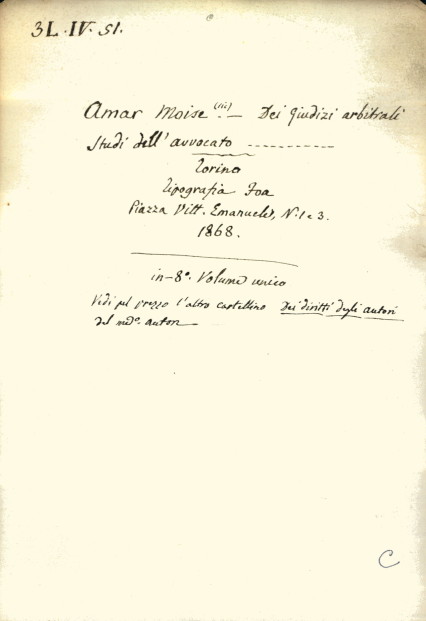 3L.IV.51.
Amar Moise (sic) — Dei Giudizi arbitrali
Studi dell'avvocato -----------
Torino
Tipografia Foa
Piazza Vitt. Emanuele, N. 1 e 3.
1868.
in-8º. Volume unico
Vedi pel prezzo l'altro cartellino Dei diritti degli autori
del medº. autore
C